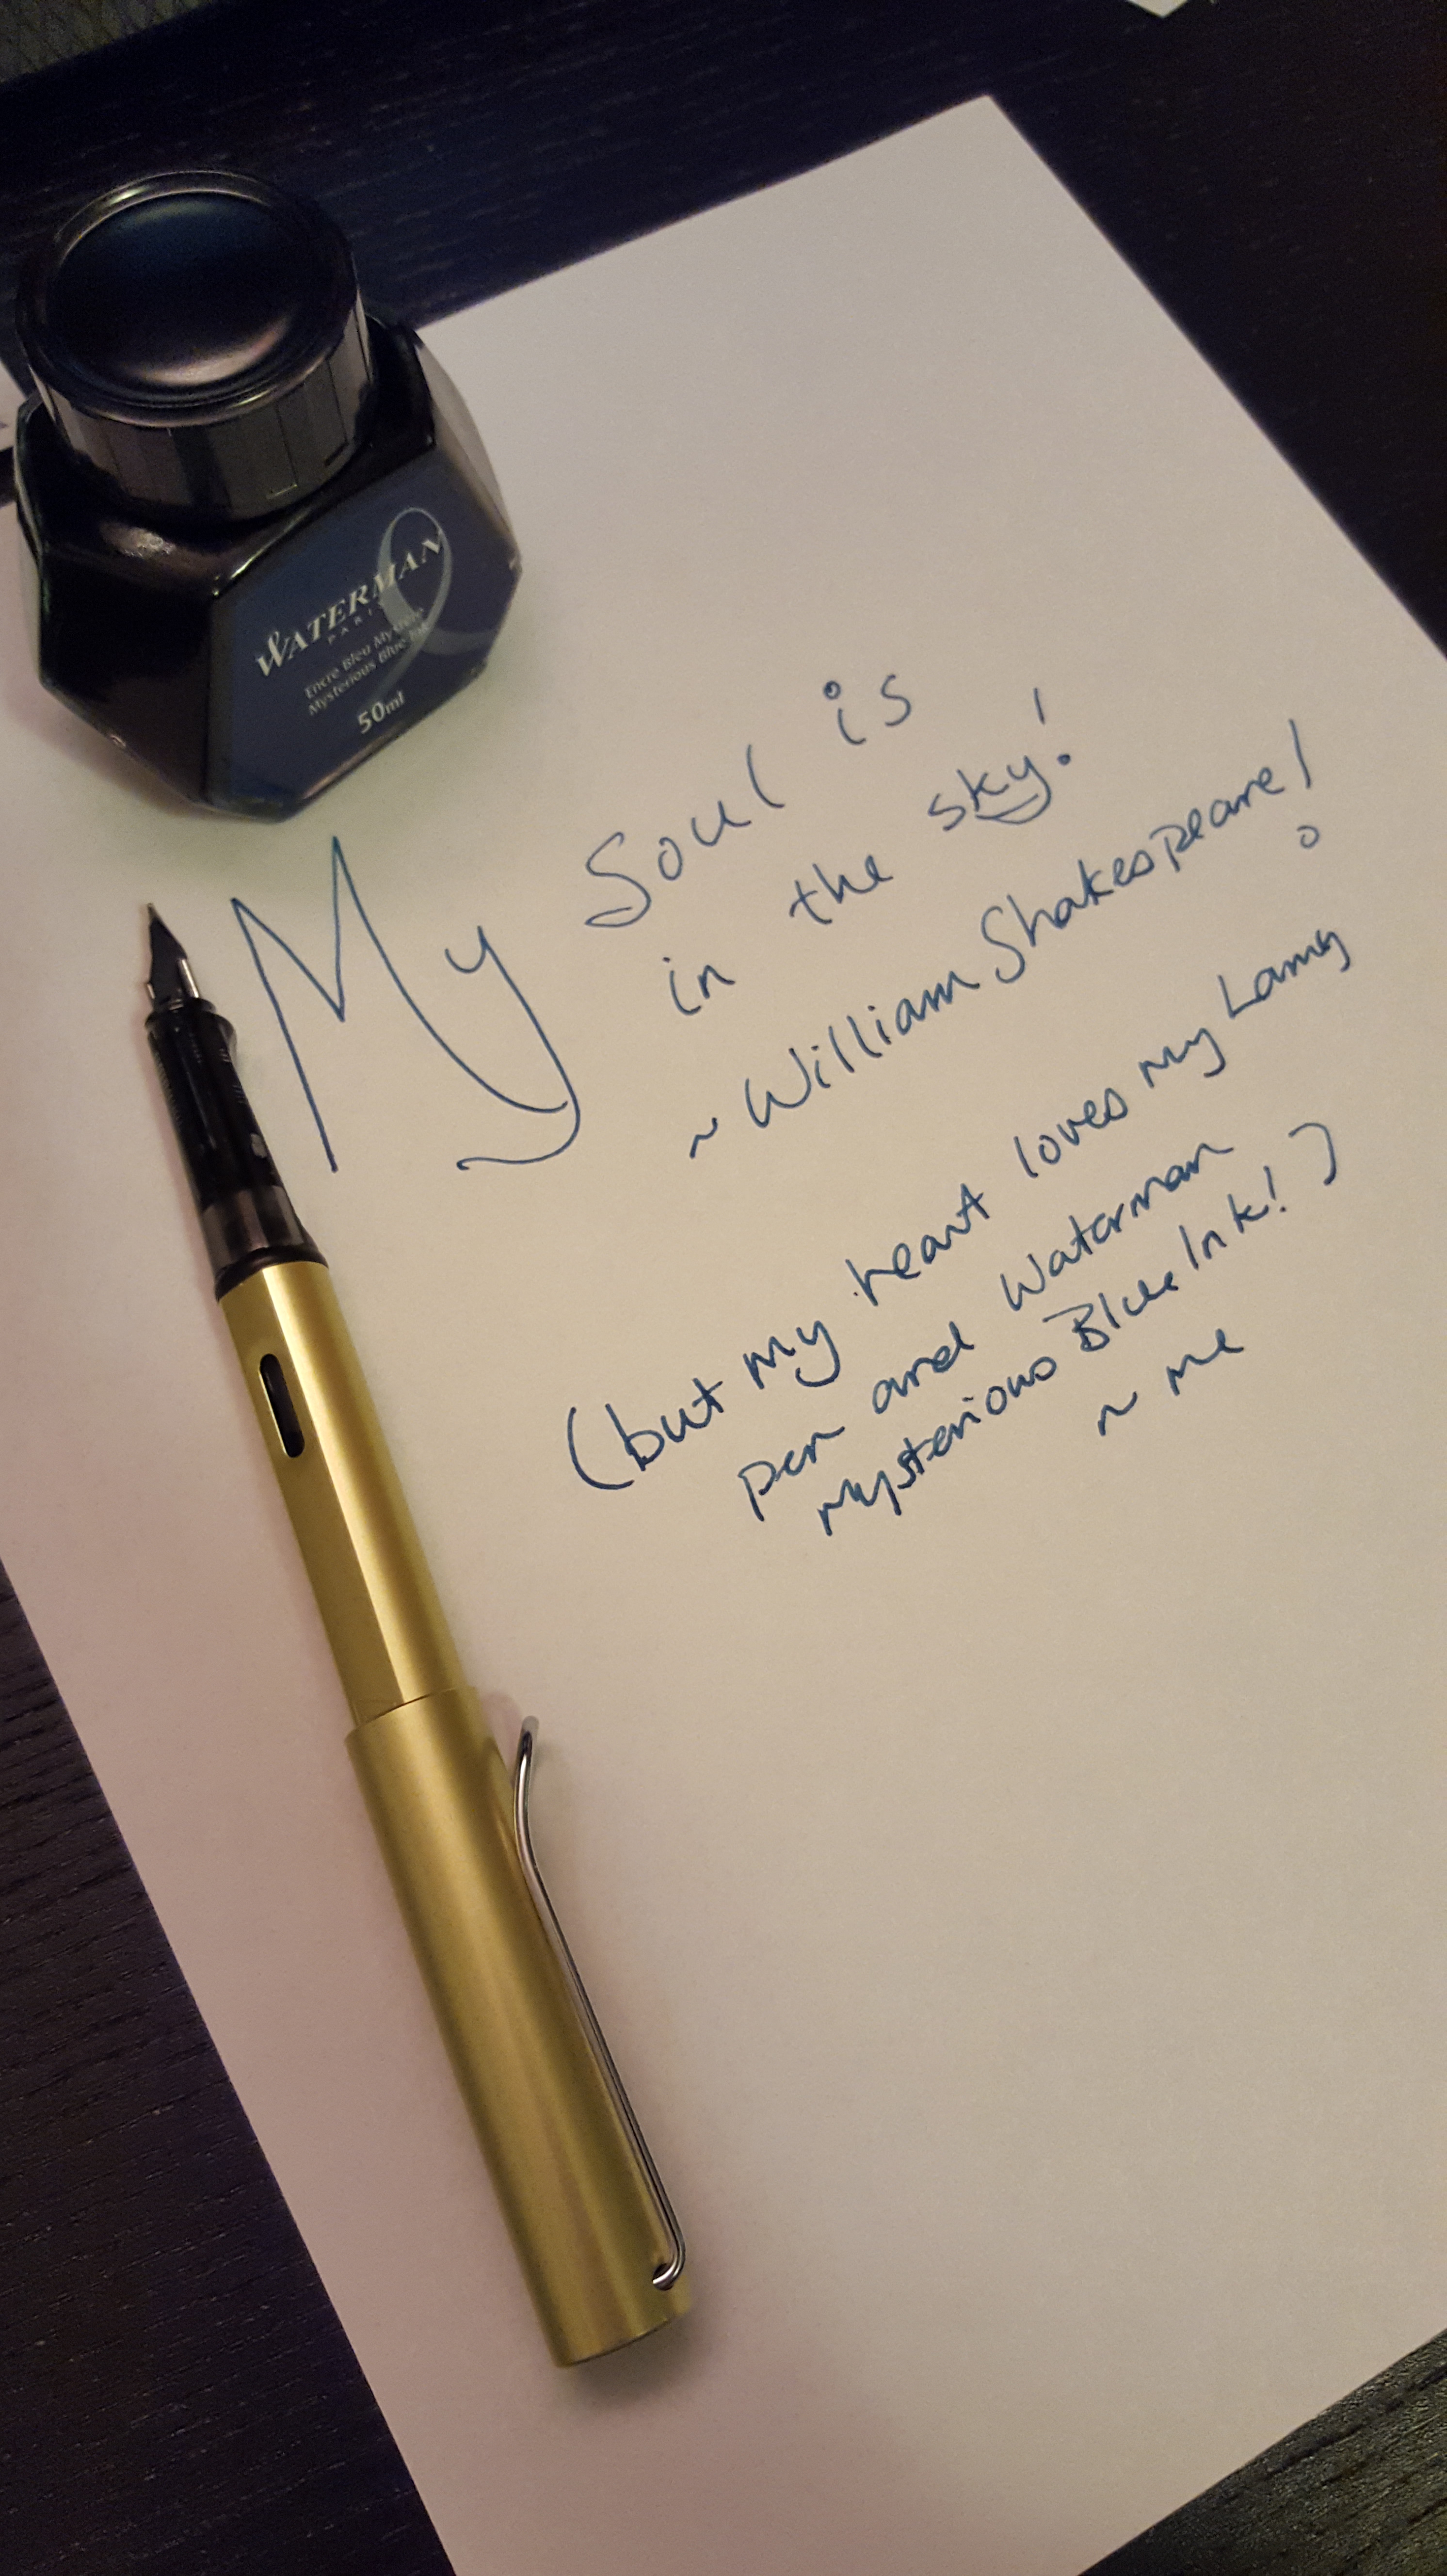 WATERMAN
PARIS
Encre Bleu Mystère
Mysterious Blue Ink
50ml
My Soul is
in the sky!
~ William Shakespeare!
(but my heart loves my Lamy
pen and Waterman
mysterious Blue Ink!)
~ me